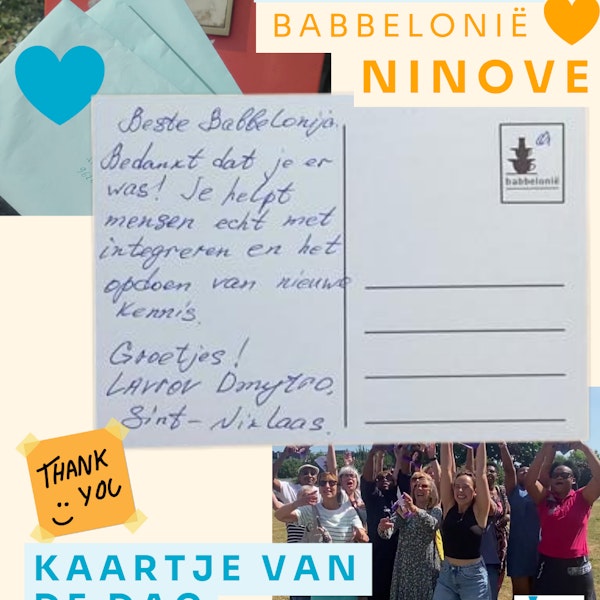 BABBELONIË
NINOVE
Beste Babbelonija.
Bedankt dat je er
was! Je helpt
mensen echt met
integreren en het
opdoen van nieuwe
kennis.
Groetjes!
Lavrov Dmytro.
Sint-Niklaas.
babbelonië
THANK
YOU
KAARTJE VAN
DE DAG